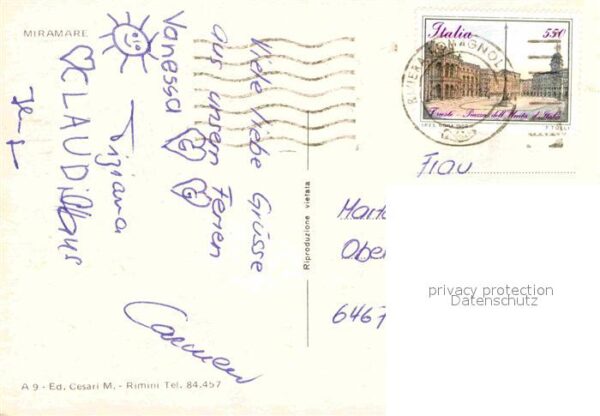 MIRAMARE
Viele liebe Grüsse
aus unsren Ferien
Vanessa
Tiziana
CLAUDIA
Carmen
Riproduzione vietata
A 9 - Ed. Cesari M. - Rimini Tel. 84.457
Italia 550
Trieste - Piazza dell'Unità d'Italia
Frau
Mart
Ober
6467
privacy protection
Datenschutz